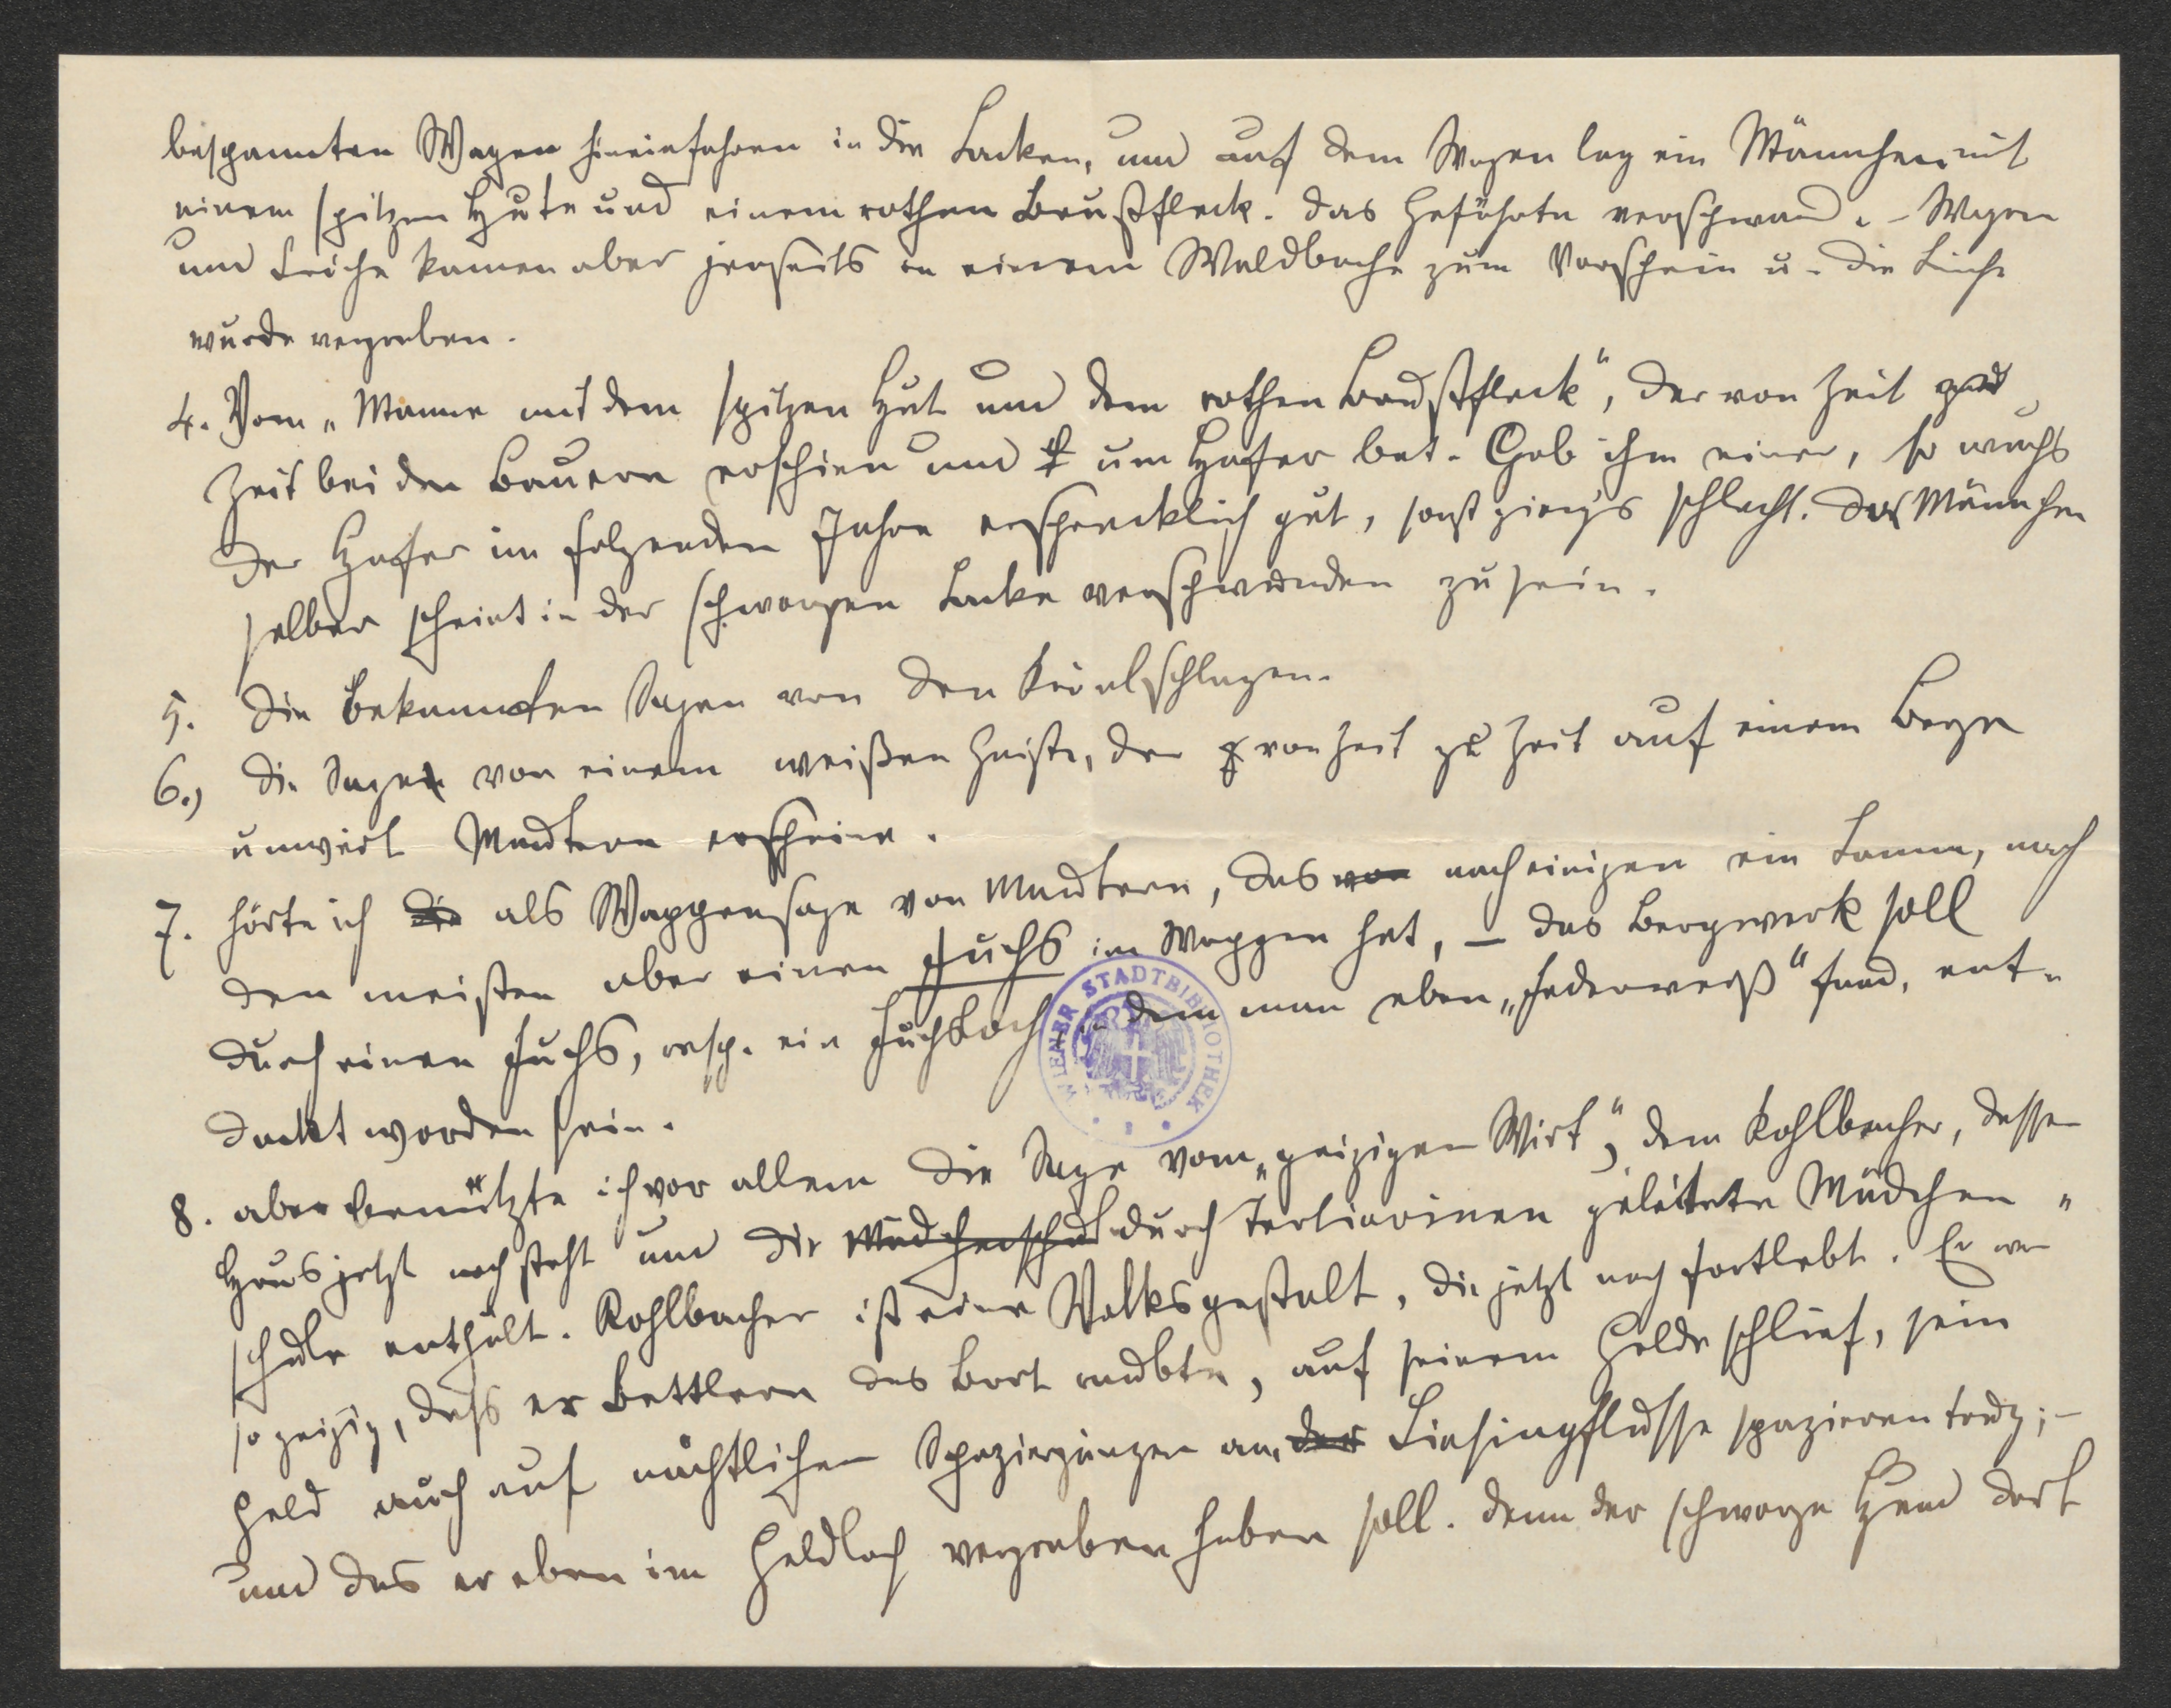 bespannten Wagen hineinfahren in die Lacken, und auf dem Wagen lag ein Männchen mit
einem spitzen Hute und einem rothen Brustfleck. Das Gefährte verschwand. - Wagen
und Leiche kamen aber jenseits in einem Waldbache zum Vorschein u. die Leiche
wurde vergraben.
4. Vom „Manne mit dem spitzen Hut und dem rothen Brustfleck", der von Zeit zu
Zeit bei den Bauern erschien und um Hafer bat. Gab ihm einer, so wuchs
der Hafer im folgenden Jahre erschrecklich gut, sonst gieng's schlecht. Das Männchen
selber scheint in der schwarzen Lacke verschwunden zu sein.
5. Die bekannten Sagen von den
6.) Die Sage von einem weißen Geiste, der von Zeit zu Zeit auf einem Berge
unweit Mautern erscheine.
7. hörte ich die als Wappensage von Mautern, das von nach einigen ein Lamm, nach
den meisten aber einen Fuchs im Wappen hat, – das Bergwerk soll
durch einen Fuchs, resp. ein Fuchsloch, in dem man eben „Federweiß" fand, ent-
deckt worden sein.
8. aber benützte ich vor allem die Sage vom „geizigen Wirt", dem Kohlbacher, dessen
Haus jetzt noch steht und die Mädchenschul durch Tertiarinen geleitete Mädchen =
schule enthält. Kohlbacher ist eine Volksgestalt, die jetzt noch fortlebt. Er war
so geizig, dass er Bettlern das Brot raubte, auf seinem Gelde schlief, sein
Geld auch auf nächtlichen Spaziergängen am der Liesingflusse spazieren trug; –
und das er eben im Geldloch vergraben haben soll. Denn der schwarze Hund dort
WIENER STADTBIBLIOTHEK